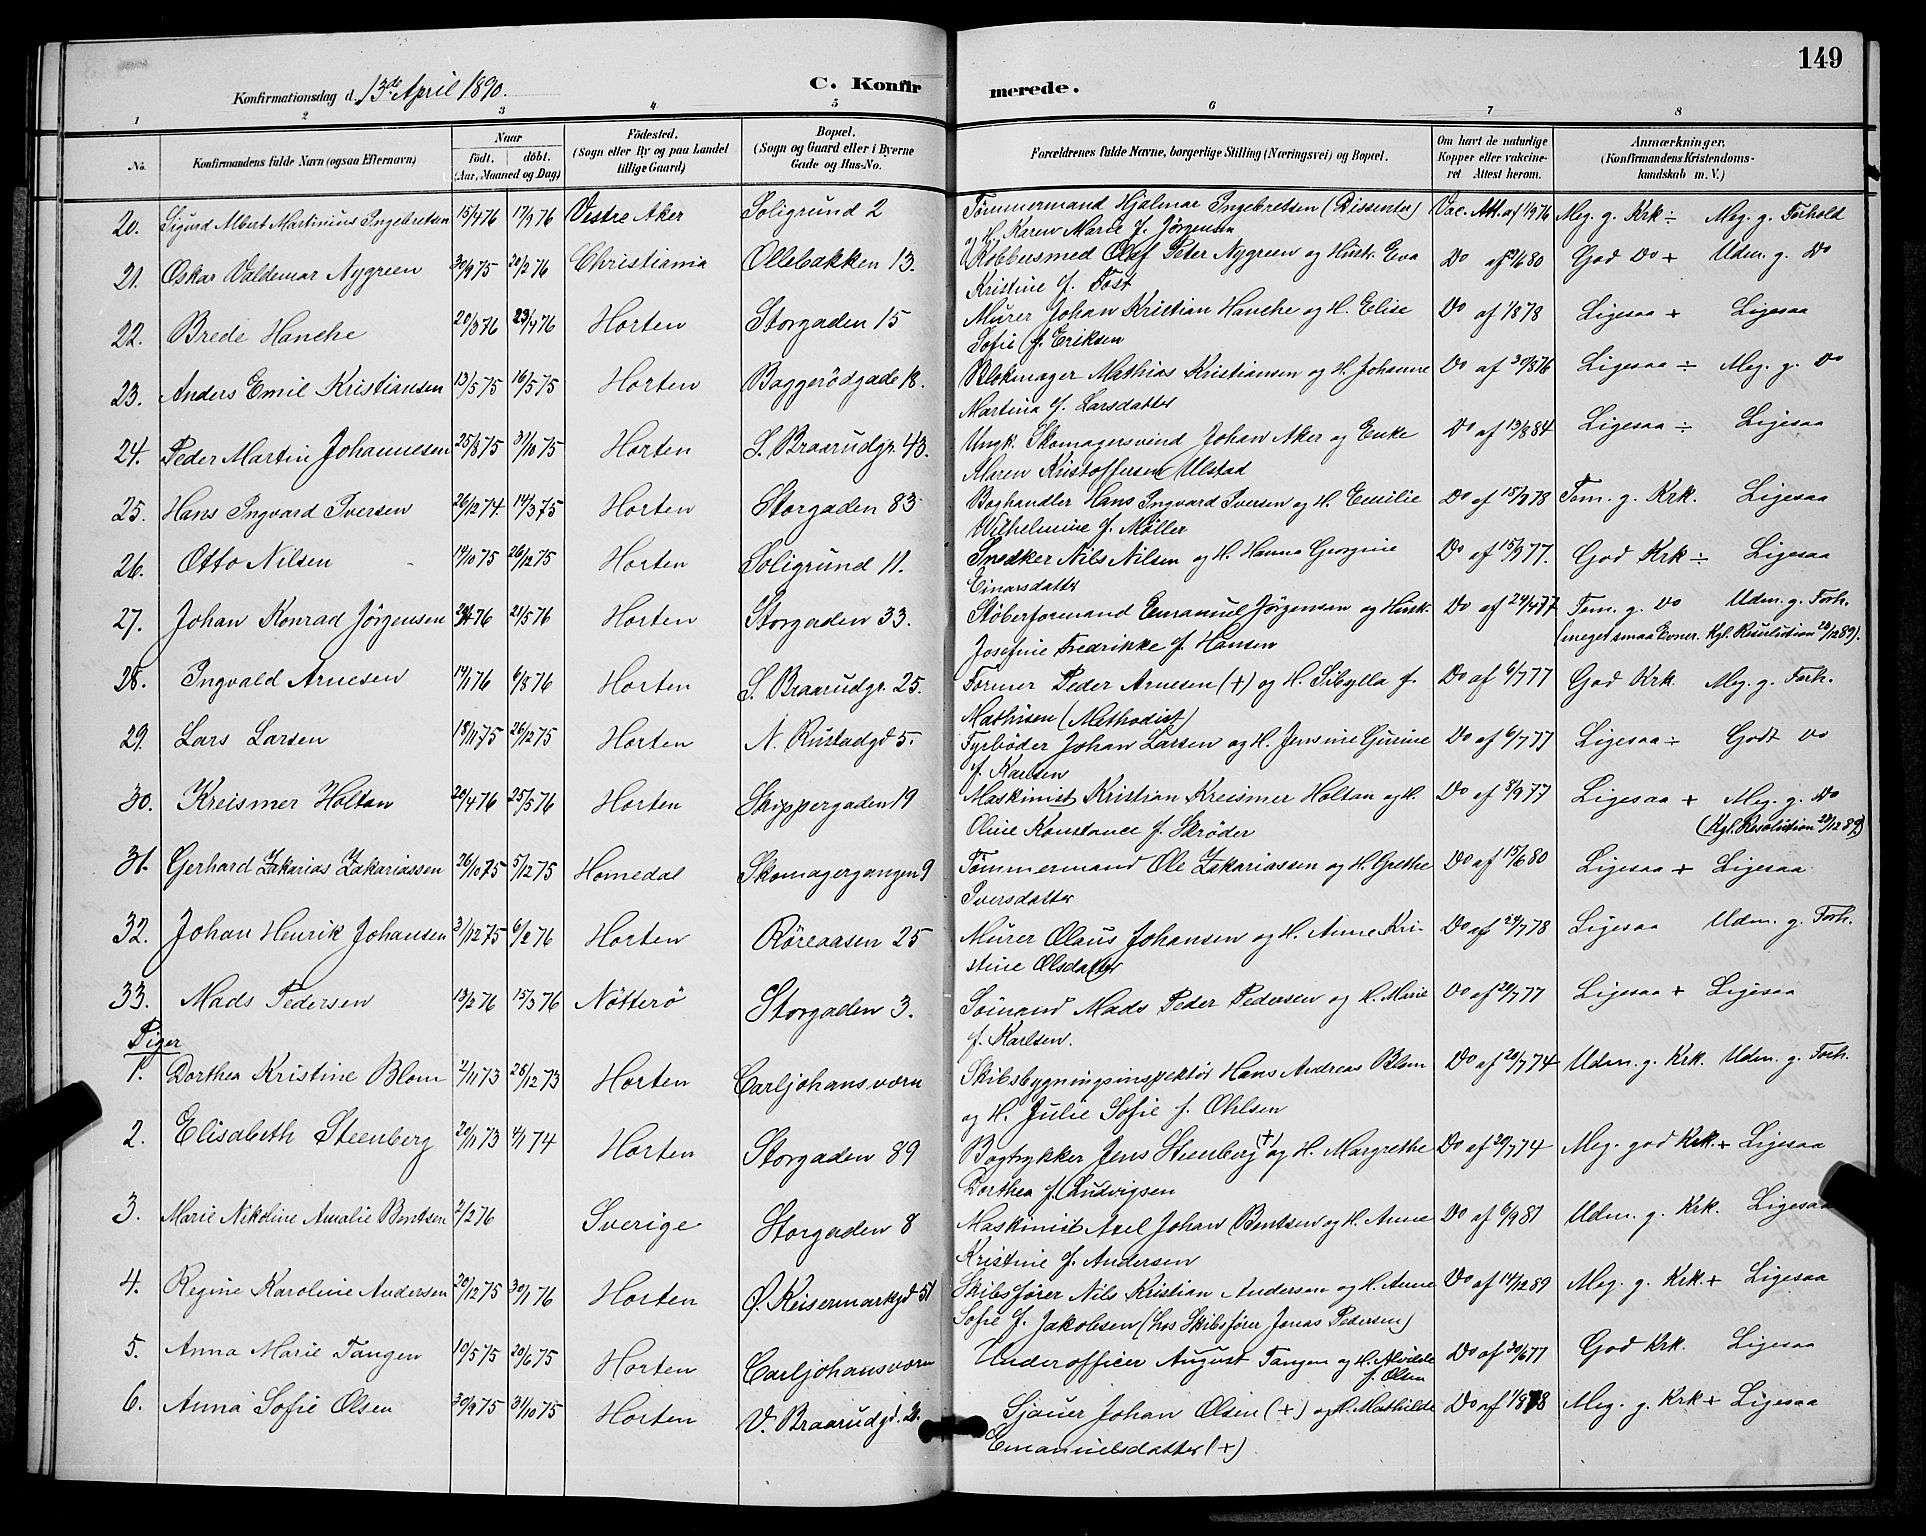 149
Konfirmationsdag d. 13de April 1890.
C. Konfirmerede.
1 2 3 4 5 6 7 8
No.
Konfirmandens fulde Navn (ogsaa Efternavn)
Naar
födt. döbt.
(Aar, Maaned og Dag)
Födested.
(Sogn eller By og paa Landet
tillige Gaard)
Bopæl.
(Sogn og Gaard eller i Byerne
Gade og Hus-No.
Forældrenes fulde Navne, borgerlige Stilling (Næringsvei) og Bopæl.
Om havt de naturlige
Kopper eller vakcine-
ret Attest herom.
Anmærkninger.
(Konfirmandens Kristendoms-
kundskab m. V.)
20. Sigurd Albert Martinius Ingebretsen 15/4 76 17/9 76 Vestre Aker Soligrund 2 Tømmermand Hjalmar Ingebretsen (Dissenter) Vac. Att. af 1/9 76 Meg. g. Krk ÷ Meg. g. Forhold
og H. Karen Marie f. Jørgensen
21. Oskar Valdemar Nygreen 30/9 75 20/2 76 Christiania Ollebakken 13. Kobbersmed Olaf Peter Nygreen og Hust. Eva Do af /6 80 God Do + Udm. g. Do
Kristine f. Tost
22. Brede Hanche 20/3 76 23/4 76 Horten Storgaden 15 Murer Johan Kristian Hanche og H. Elise Do af 1/8 78 Ligesaa + Ligesaa
Sofie f. Eriksen
23. Anders Emil Kristiansen 13/5 75 16/5 75 Horten Baggerödgade 18. Blokmager Mathias Kristiansen og H. Johanne Do af 30/8 76 Ligesaa ÷ Meg. g. Do
Martina f. Larsdatter
24. Peder Martin Johannesen 25/8 75 31/10 75 Horten S. Braarudgr. 43. Ungk. Skomagersvend Johan Aker og Enke Do af 13/8 84 Ligesaa ÷ Ligesaa
Maren Kristoffersen Ulstad
25. Hans Ingvard Iversen 26/12 74. 14/3 75 Horten Storgaden 83 Boghandler Hans Ingvard Iversen og H. Emilie Do af 15/9 78 Tem. g. Krk. Ligesaa
Wilhelmine f. Møller
26. Otto Nilsen 14/10 75 26/12 75 Horten Soligrund 11. Snedker Nils Nilsen og H. Hanna Georgine Do af 15/9 77. God Krk ÷ Ligesaa
Einarsdatter
27. Johan Konrad Jörgensen 76 21/5 76 Horten Storgaden 33. Støberformand Emanuel Jørgensen og Hust. Do af 24/4 77 Tem. g. Do Udm. g. Forh.
Josefine Fredrikke f. Hansen (meget smaa Evner. Kgl. Resolution 28/12 89).
28. Ingvald Arnesen 14/1 76 6/8 76 Horten S. Braarudgr. 25. Former Peder Arnesen (+) og H. Sibylla f. Do af 6/7 77 God Krk. Meg. g. Forh.
Mathisen (Methodist)
29. Lars Larsen 18/11 75 26/12 75 Horten N. Rustadgd 5. Fyrbøder Johan Larsen og H. Jensine Gurine Do af 6/7 77 Ligesaa ÷ Godt Do
f. Karlsen
30. Kreismer Holtan 20/4 76 25/5 76 Horten Skippergaden 19 Maskinist Kristian Kreismer Holtan og H. Do af 8/9 77 Ligesaa + Meg. g. Do
Oline Konstance f. Skrøder (Kgl. Resolution 28/12 89)
31. Gerhard Zakarias Zakariassen 26/10 75 5/12 75 Homedal Skomagergangen 9 Tømmermand Ole Zakariassen og H. Grethe Do af 15/6 80 Ligesaa + Ligesaa
Iversdatter
32. Johan Henrik Johansen 3/12 75 6/2 76 Horten Röreaasen 25 Murer Olaus Johansen og H. Anne Kri- Do af 24/7 78 Ligesaa Udm. g. Forh.
stine Olsdatter
33. Mads Pedersen 13/2 76 15/3 76 Nötterö Storgaden 3. Sømand Mads Peder Pedersen og H. Marie Do af 20/7 77 Ligesaa + Ligesaa
f. Karlsen.
Piger
1. Dorthea Kristine Blom 2/11 73 28/12 73 Horten Carljohansværn Skibsbygningsinspektør Hans Andreas Blom Do af 20/7 74 Udm. g. Krk. Udm. g. Forh.
og H. Julie Sofie f. Ohlsen
2. Elisabeth Steenberg 20/11 73 4/1 74 Horten Storgaden 89 Bogtrykker Jens Steenberg (+) og H. Margrethe Do af 20/7 74 Meg. god Krk. + Ligesaa
Dorthea f. Ludvigsen
3. Marie Nikoline Amalie Bentsen 2/2 76 Sverige Storgaden 8 Maskinist Axel Johan Bentsen og H. Anne Do af 6/9 81 Udm. g. Krk. Ligesaa
Kristine f. Andersen
4. Regine Karoline Andersen 20/12 75 30/1 76 Horten Ø. Keisermarkgd 51 Skibsfører Nils Kristian Andersen og H. Anne Do af 14/12 89 Meg. g. Krk + Ligesaa
Sofie f. Jakobsen (hos Skibsfører Jonas Pedersen)
5. Anna Marie Tangen 19/5 75 20/6 75 Horten Carljohansværn Underofficer August Tangen og H. Alvilde Do af 30/6 77 God Krk. Ligesaa
f. Olsen
6. Anna Sofie Olsen 30/9 75 31/10 75 Horten V. Braarudgd. Sjauer Johan Olsen (+) og H. Mathilde Do af 1/8 78 Meg. g. Krk + Ligesaa
Emanuelsdatter (+).